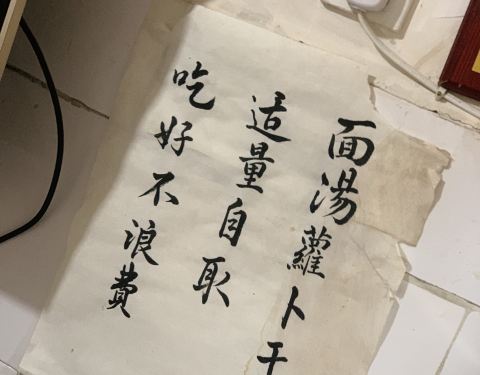 面湯蘿卜干
适量自取
吃好不浪費